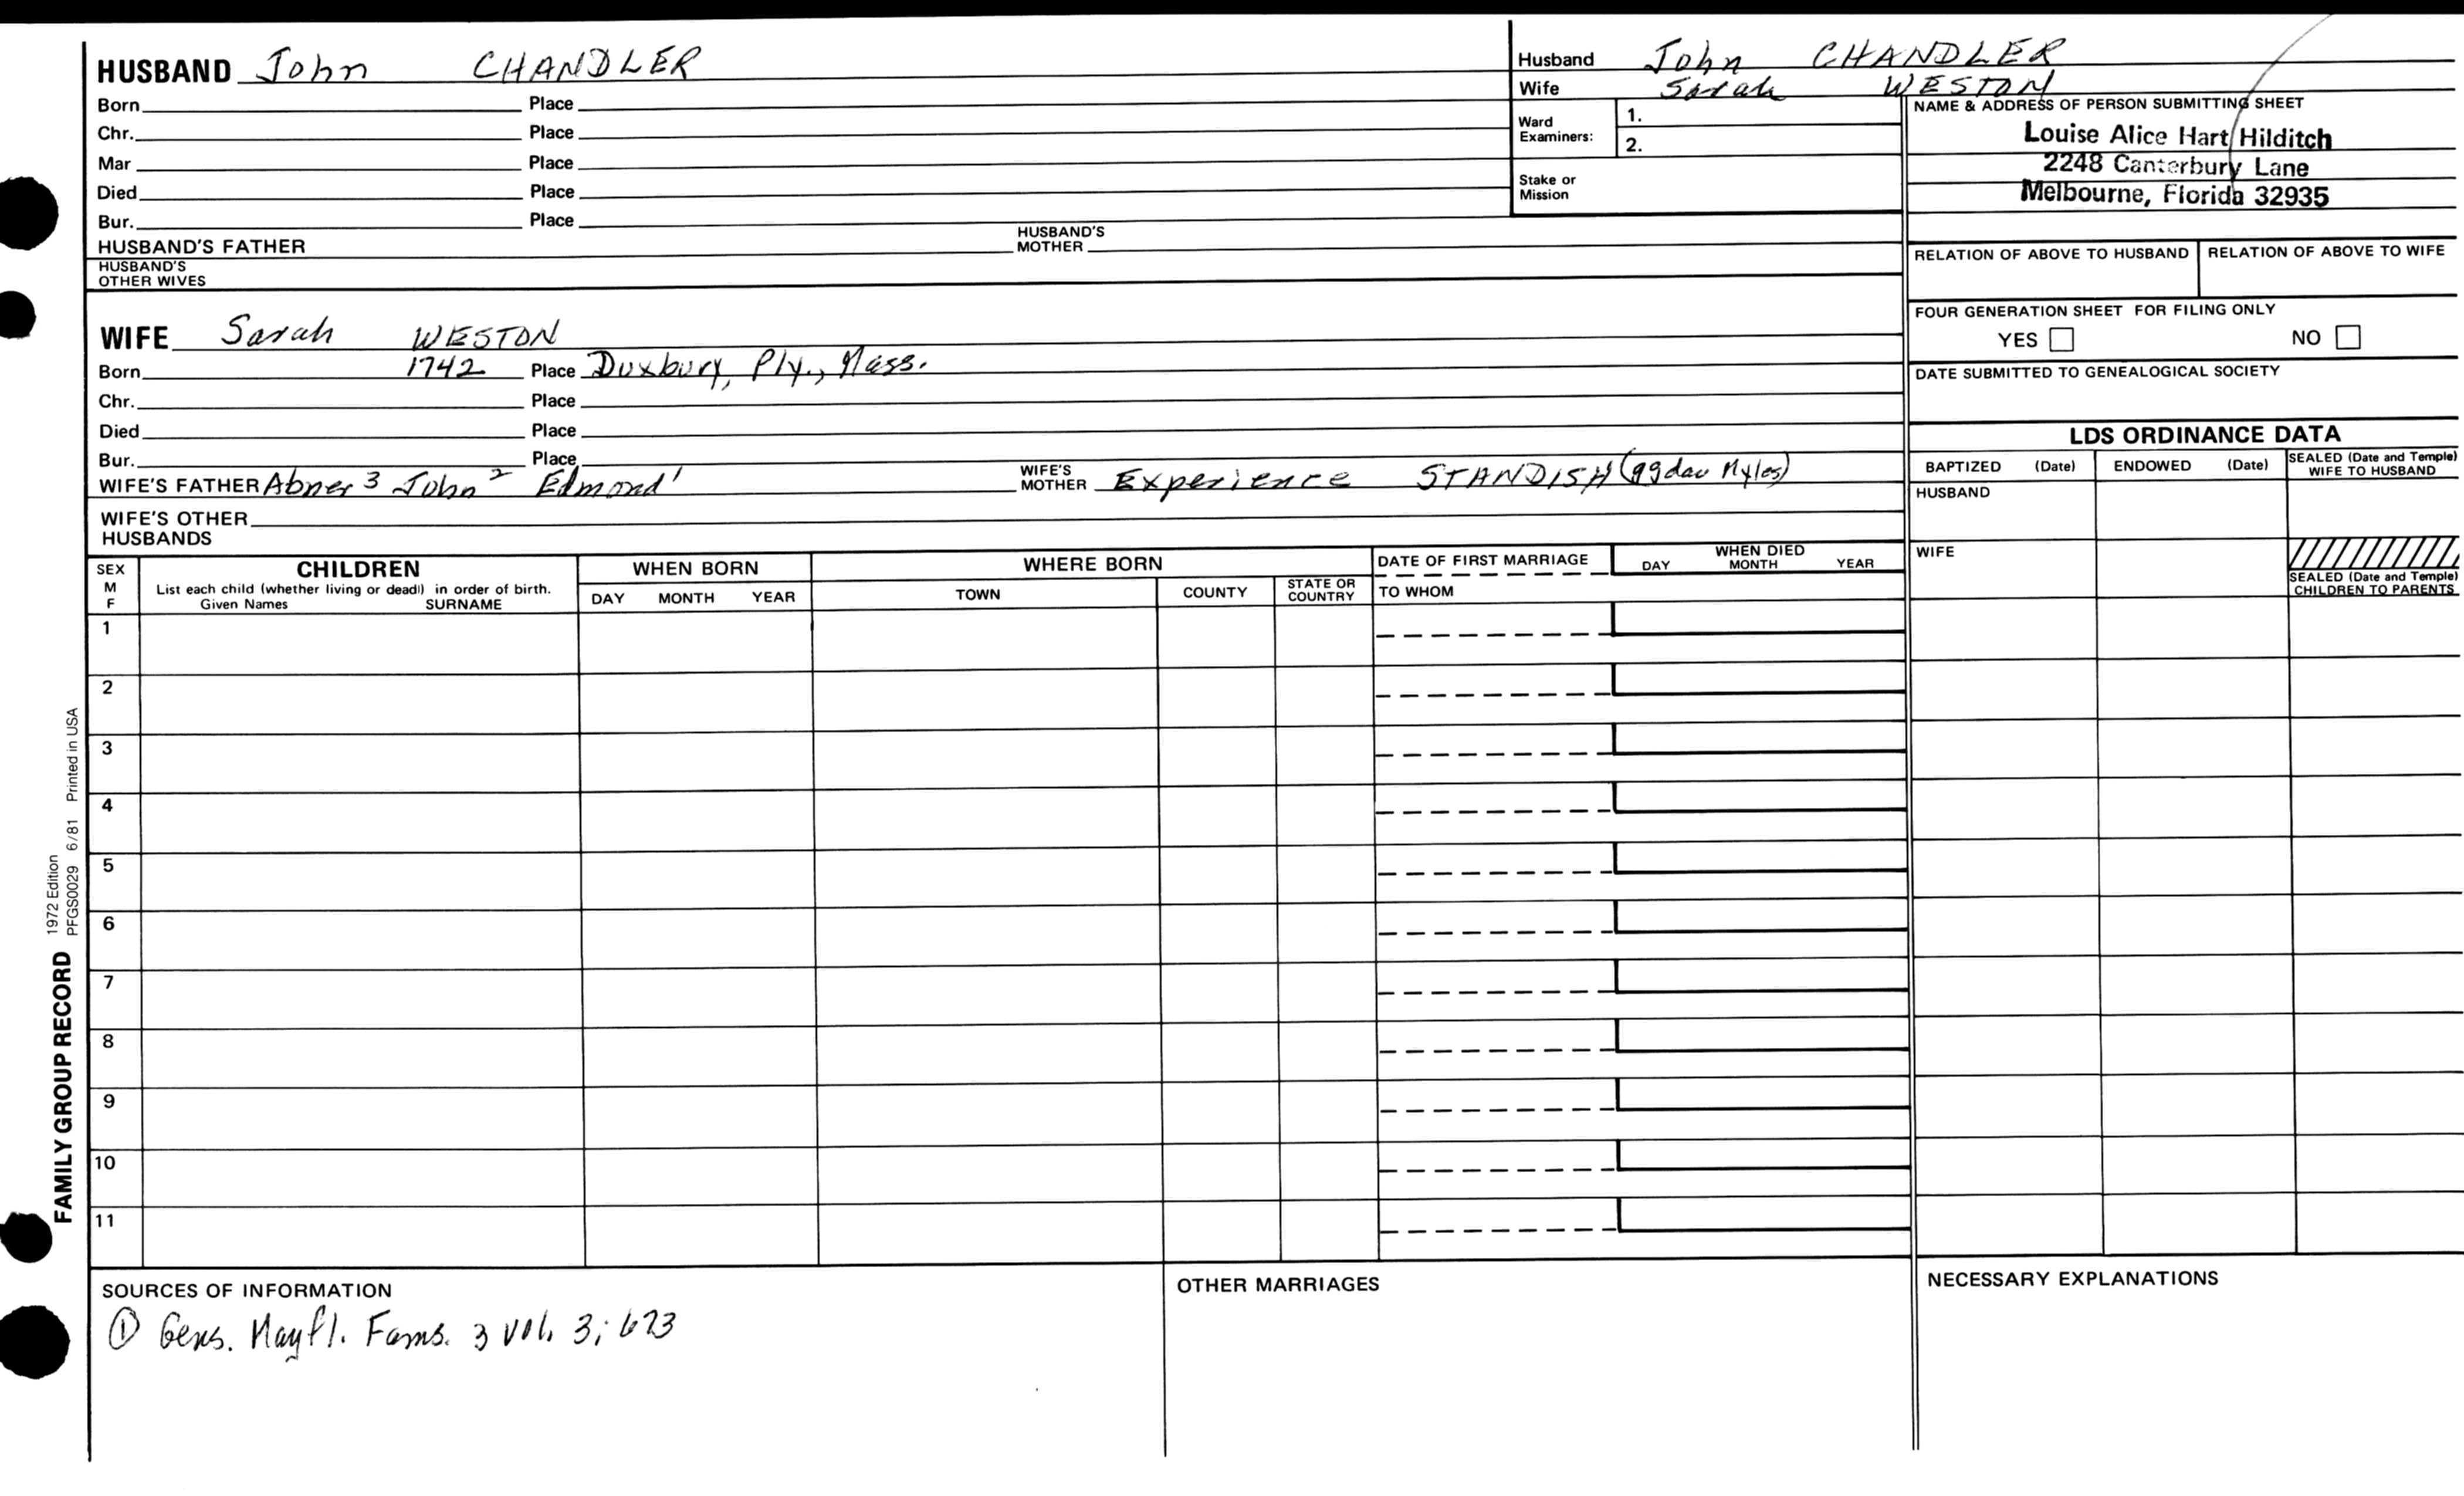 HUSBAND John CHANDLER
Born Place
Chr. Place
Mar Place
Died Place
Bur. Place
HUSBAND'S FATHER HUSBAND'S MOTHER
HUSBAND'S OTHER WIVES
Husband John CHANDLER
Wife Sarah WESTON
Ward Examiners: 1.
2.
Stake or Mission
NAME & ADDRESS OF PERSON SUBMITTING SHEET
Louise Alice Hart Hilditch
2248 Canterbury Lane
Melbourne, Florida 32935
RELATION OF ABOVE TO HUSBAND RELATION OF ABOVE TO WIFE
FOUR GENERATION SHEET FOR FILING ONLY
YES NO
DATE SUBMITTED TO GENEALOGICAL SOCIETY
WIFE Sarah WESTON
Born 1742 Place Duxbury, Ply., Mass.
Chr. Place
Died Place
Bur. Place
WIFE'S FATHER Abner 3 John 2 Edmond 1 WIFE'S MOTHER Experience STANDISH (ggdau Myles)
WIFE'S OTHER HUSBANDS
LDS ORDINANCE DATA
BAPTIZED (Date) ENDOWED (Date) SEALED (Date and Temple) WIFE TO HUSBAND
HUSBAND
WIFE
SEALED (Date and Temple) CHILDREN TO PARENTS
SEX M F
CHILDREN
List each child (whether living or dead) in order of birth.
Given Names SURNAME
WHEN BORN
DAY MONTH YEAR
WHERE BORN
TOWN COUNTY STATE OR COUNTRY
DATE OF FIRST MARRIAGE
TO WHOM
WHEN DIED
DAY MONTH YEAR
1
2
3
4
5
6
7
8
9
10
11
SOURCES OF INFORMATION
① Gens. Mayfl. Fams. 3 vol. 3; 673
OTHER MARRIAGES
NECESSARY EXPLANATIONS
FAMILY GROUP RECORD 1972 Edition
PFGS0029 6/81 Printed in USA